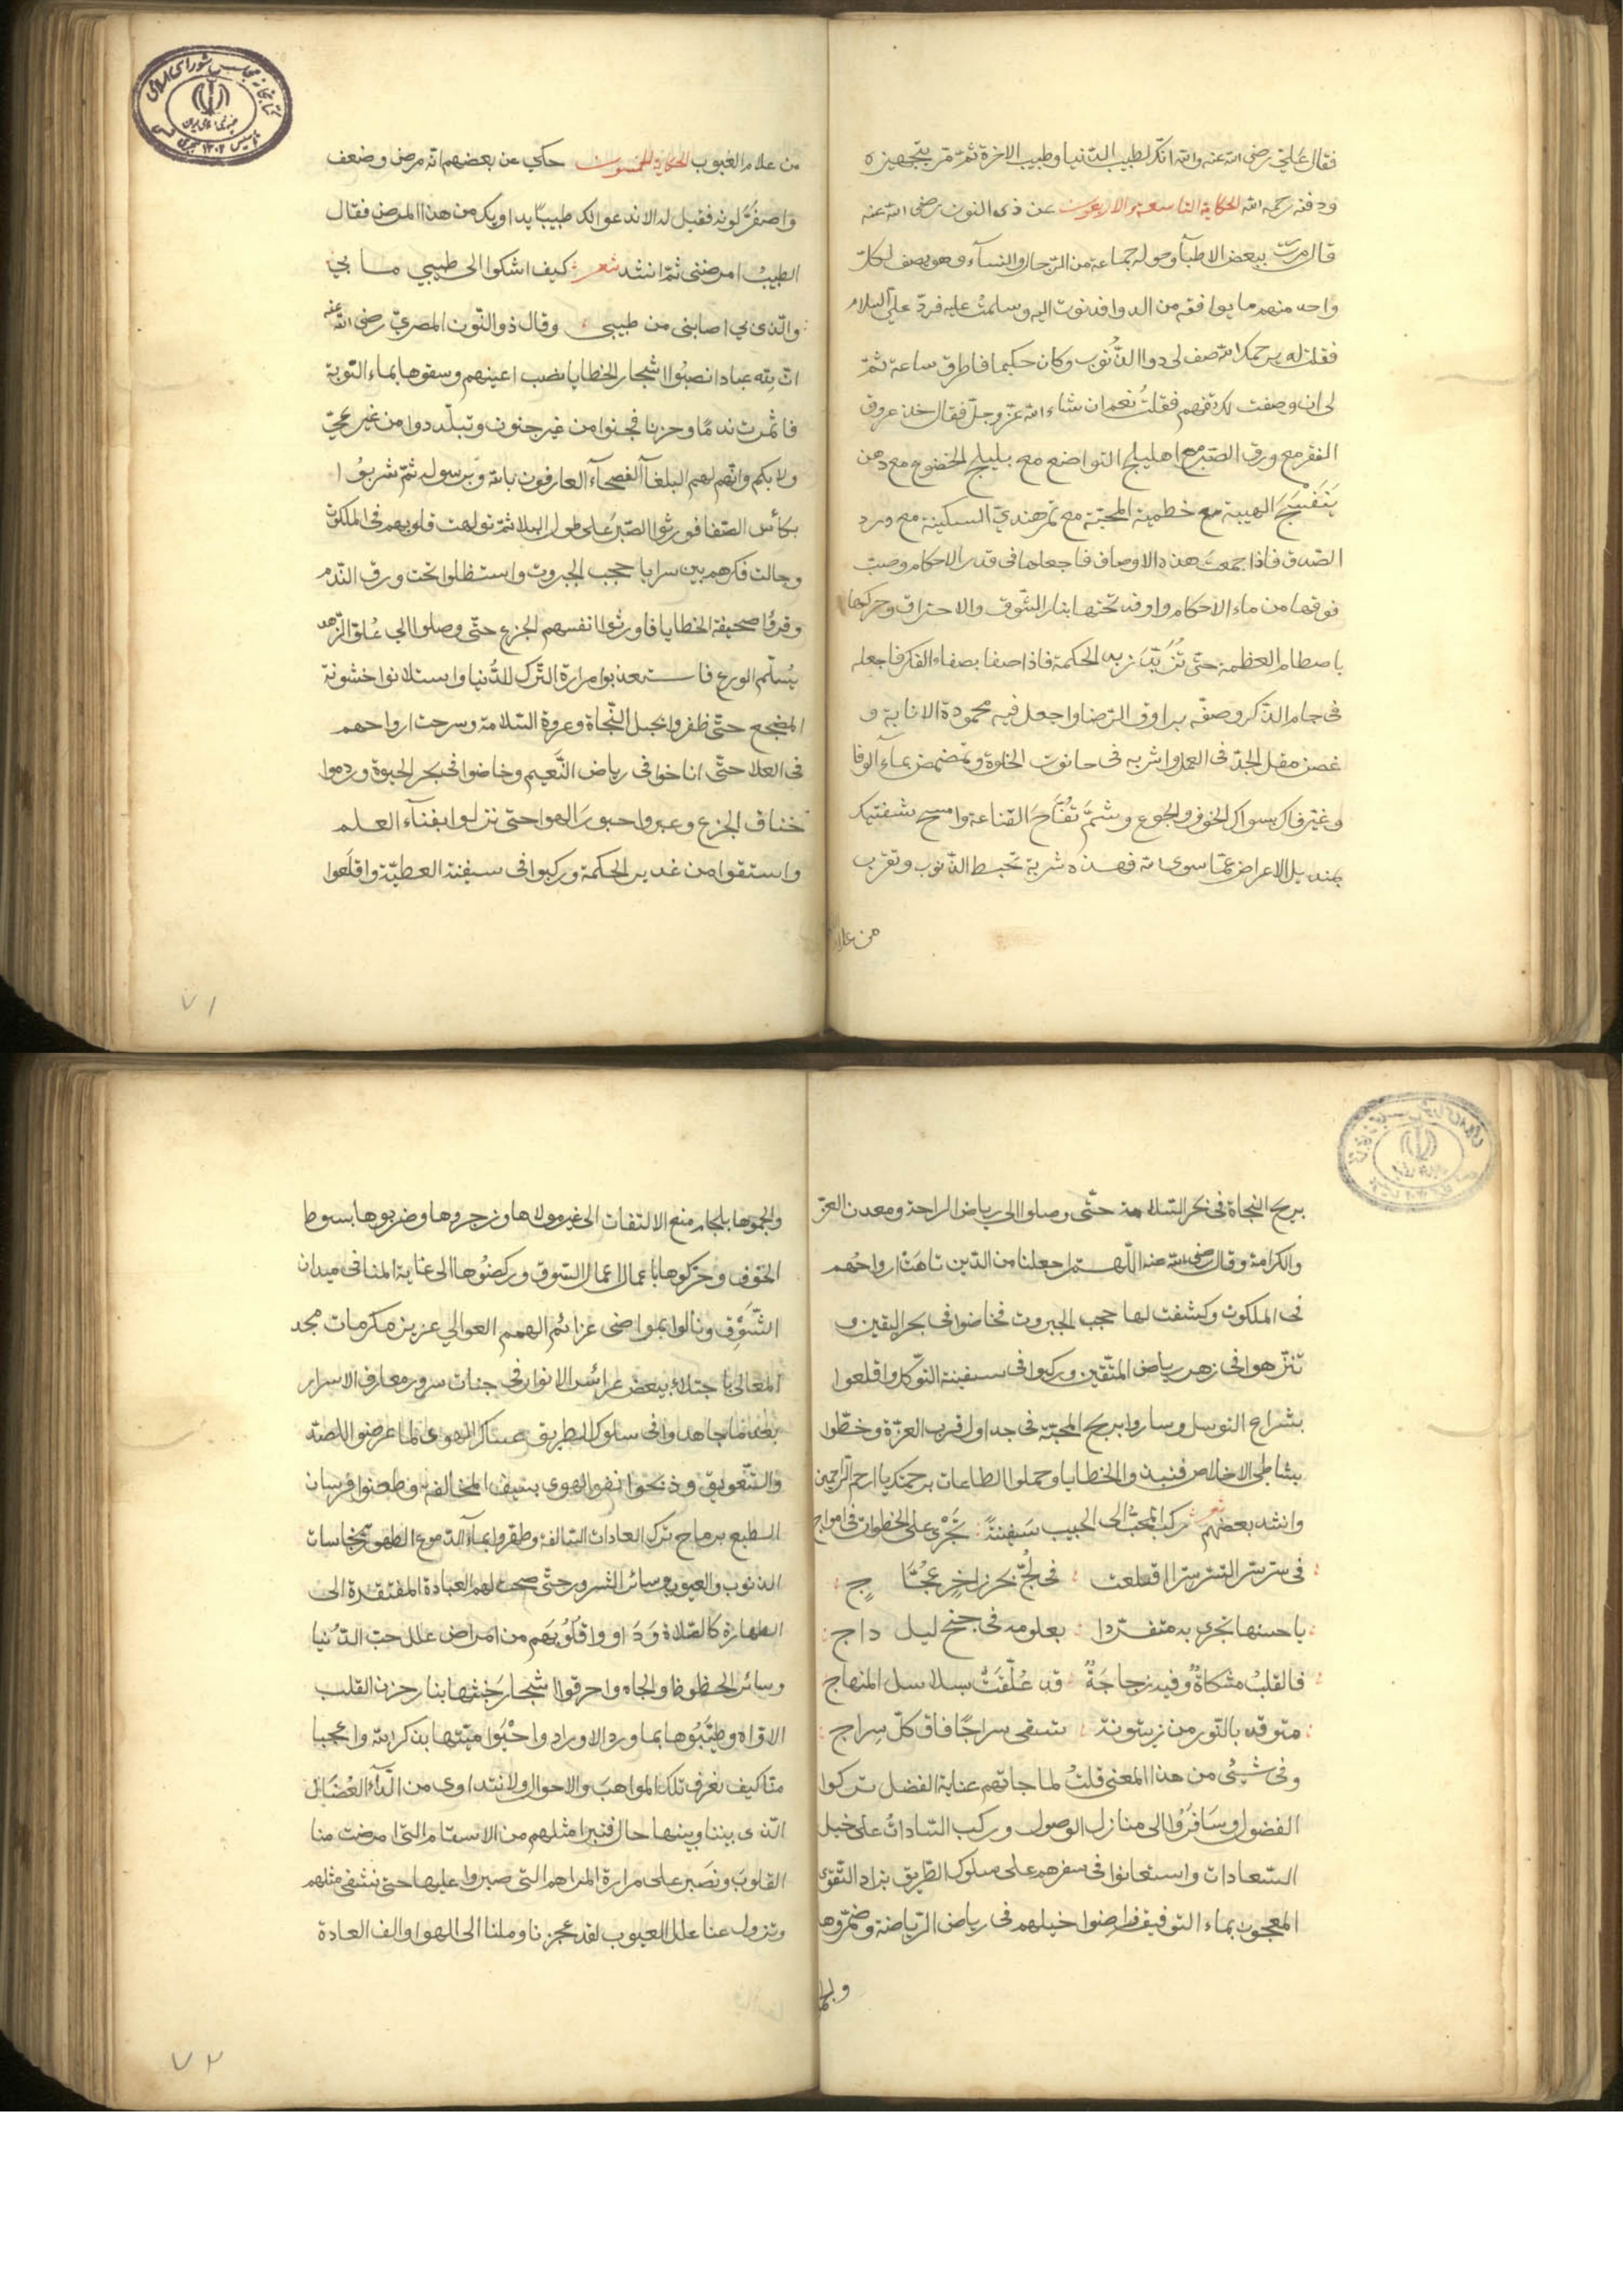 فقال علي رضى الله عنه والله انك لطبيب الدنيا وطبيب الاخرة ثم مر بتجهيزه
ودفنه رحمه الله الحكاية التاسعة والاربعون عن ذى النون رضى الله عنه
قال مررت ببعض الاطبآ وحوله جماعة من الرجال والنسآء وهو يصف لكل
واحد منهم ما يوافقه من الدوا فدنوت اليه وسلمت عليه فردّ علي السلام
فقلت له يرحمك الله صف لى دوا الذُّنوب وكان حكيما فاطرق ساعة ثمّ
لى ان وصفت لك تفهم فقلتُ نعم ان شاء الله عزّ وجلّ فقال خذ عروق
الفقر مع ورق الصّبر مع اهليلج التواضع مع بليلج الخضوع مع دهن
بَنَفْسَجَ الهيبة مع خطمية المحبّة مع تمر هنديّ السكينة مع ورد
الصّدق فاذا جمعتَ هذه الاوصاف فاجعلها فى قدر الاحكام وصبّ
فوقها من ماء الاحكام واوقد تحتها بنار الشّوق والاحتراق وحركها
باصطام العظمة حتّى تزُبّدَ زبد الحكمة فاذا صفا بصفاء الفكر فاجعله
فى جام الذّكر وصفّه براوق الرّضا واجعل فيه محمودة الانابة و
غصن مقل الجدّ فى العمل واشربه فى حانوت الخلوة وتمضمض بمآء الوفا
وغيّر فاك بسواك الخوف والجوع وشمَّ تفّاحَ القناعة وامسح شفتيك
بمنديل الاعراض عمّا سوى الله فهذه شربة تحبط الذّنوب وتقرّب
من علام
من علام الغيوب الحكاية الخمسون حكي عن بعضهم انه مرض وضعف
واصفرّ لونه فقيل له الا ندعو لك طبيبًا يداويك من هذا المرض فقال
الطبيبُ امرضنى ثمّ انشد شعر كيف اشكوا الى طبيبي ما بي
والّذى بي اصابنى من طبيبى وقال ذو النّون المصريّ رضى الله عنه
انّ لله عبادا نصبُوا اشجار الخطايا نصب اعينهم وسقوها بماء التّوبة
فاثمرت ندمًا وحزنا فجنوا من غير جنون وتبلّدوا من غير عيّ
ولا بكم وانّهم لهم البلغآ الفصحآء العارفون بالله وبرسوله ثمّ شربوُا
بكأس الصّفا فورثوا الصّبرَ على طول البلا ثمّ تولهت قلوبهم فى الملكوت
وجالت فكرهم بين سرايا حجب الجبروت واستظلوا تحت ورق النّدم
وقروُا صحيفة الخطايا فاورثوا انفسهم الجزع حتّى وصلوا الى عُلوّ الزّهد
بسُلّم الورع فاستعذبوا مرارة التّرك للدُّنيا واستلانوا خشونة
المضجع حتّى ظفروا بحبل النّجاة وعروة السّلامة وسرحت ارواحهم
فى العلا حتّى اناخوا فى رياض النَّعيم وخاضوا فى بحر الحيوة وردموا
خنادق الجزع وعبروا جسورَ الهوا حتى نزلوا بفنآء العلم
واستقوا من غدير الحكمة وركبوا فى سفينة العطيّة واقلَعوا
٧١
بريح النجاة فى بحر السّلامة حتّى وصلوا الى رياض الراحة ومعدن العزّ
والكرامة وقال رضى الله عنه اللّهم اجعلنا من الذين تاهَتْ ارواحُهم
فى الملكوت وكشفت لها حجب الجبروت فخاضوا فى بحر اليقين و
تنزّهوا فى زهر رياض المتّقين وركبوا فى سفينة التوّكل واقلعوا
بشراع التوسل وساروا بريح المحبّة فى جداول قرب العزّة وحطّوا
بشاطئ الاخلاص فنبذوا الخطايا وحملوا الطاعات برحمتك يا ارحم الرّحمين
وانشد بعضهم شعر ركب المحبّ الى الحبيب سَفينةً تَجْرى على الخطوات فى امواج
فى سرّ سرّ السّر سرّا اقلعت فى لُجّ بحر زاخرٍ عجّاج
يا حسنها تجرى به متفردا بعلومه فى جنح ليل داج
فالقلبُ مشكاةٌ وفيه زجاجَةٌ قد عُلّقَتْ بسلاسل المنهاج
متوقد بالنّور من زيتونة تسقى سراجًا فاق كلّ سِراج
وفى شئٍ من هذا المعنى قلتُ لما جاتهم عناية الفضل تركوا
الفضول وسَافروُا الى منازل الوصول وركب السّاداتُ على خيل
السّعادات واستعانوا فى سفرهم على سلوك الطّريق بزاد التّقوى
المعجون بماء التوفيق فراضوا خيلهم فى رياض الرّياضة وضمّروها
والجموها بلجام منع الالتفات الى غير مولاها وزجروها وضربوها بسوط
الخوف وحرّكوها باعمال اعمال السّوق وركضُوها الى غاية المنا فى ميدان
الشّوق ونالوا بمواضى عزائم الهمم العوالي عزيز مكرمات مجد
المعالى باجتلاء بعض عرائس الانوار فى جنات سرور معارف الاسرار
بعد ما جاهدوا فى سلوك الطريق عساكر الهوى لما عرضوا للصّد
والتّعويق وذبحوا نفوا الهوى بسيف المخالفة وطعنوا فرسان
الطبع برماح ترك العادات السّالفة وطهّروا بمآء الدّموع الطّهور نجاسات
الذنوب والعيوب وسائر الشرور حتّى صحت لهم العبادة المفتقرة الى
الطهارة كالصّلاة وَدَاووا قلُوبَهم من امراض علل حبّ الدّنيا
وسائر الحظوظ والجاه واحرقوا اشجار خبثها بنار حزن القلب
الاوّاه وطيّبُوها بماورد الاوراد واحْيَوا ميّتها بذكر الله واعجبا
منّا كيف نعرف تلك المواهبَ والاحوال ولا نتداوى من الدّآء العُضَال
الّذى بيننا وبينها حال فنبرا مثلهم من الاسقام الّتى امرضت منا
القلوبَ ونصَبر على مرارة المراهم التى صبروا عليها حتى نشفى مثلهم
وتزول عنا علل العيوب لقد عجزنا وملنا الى الهوا والف العادة
٧٢